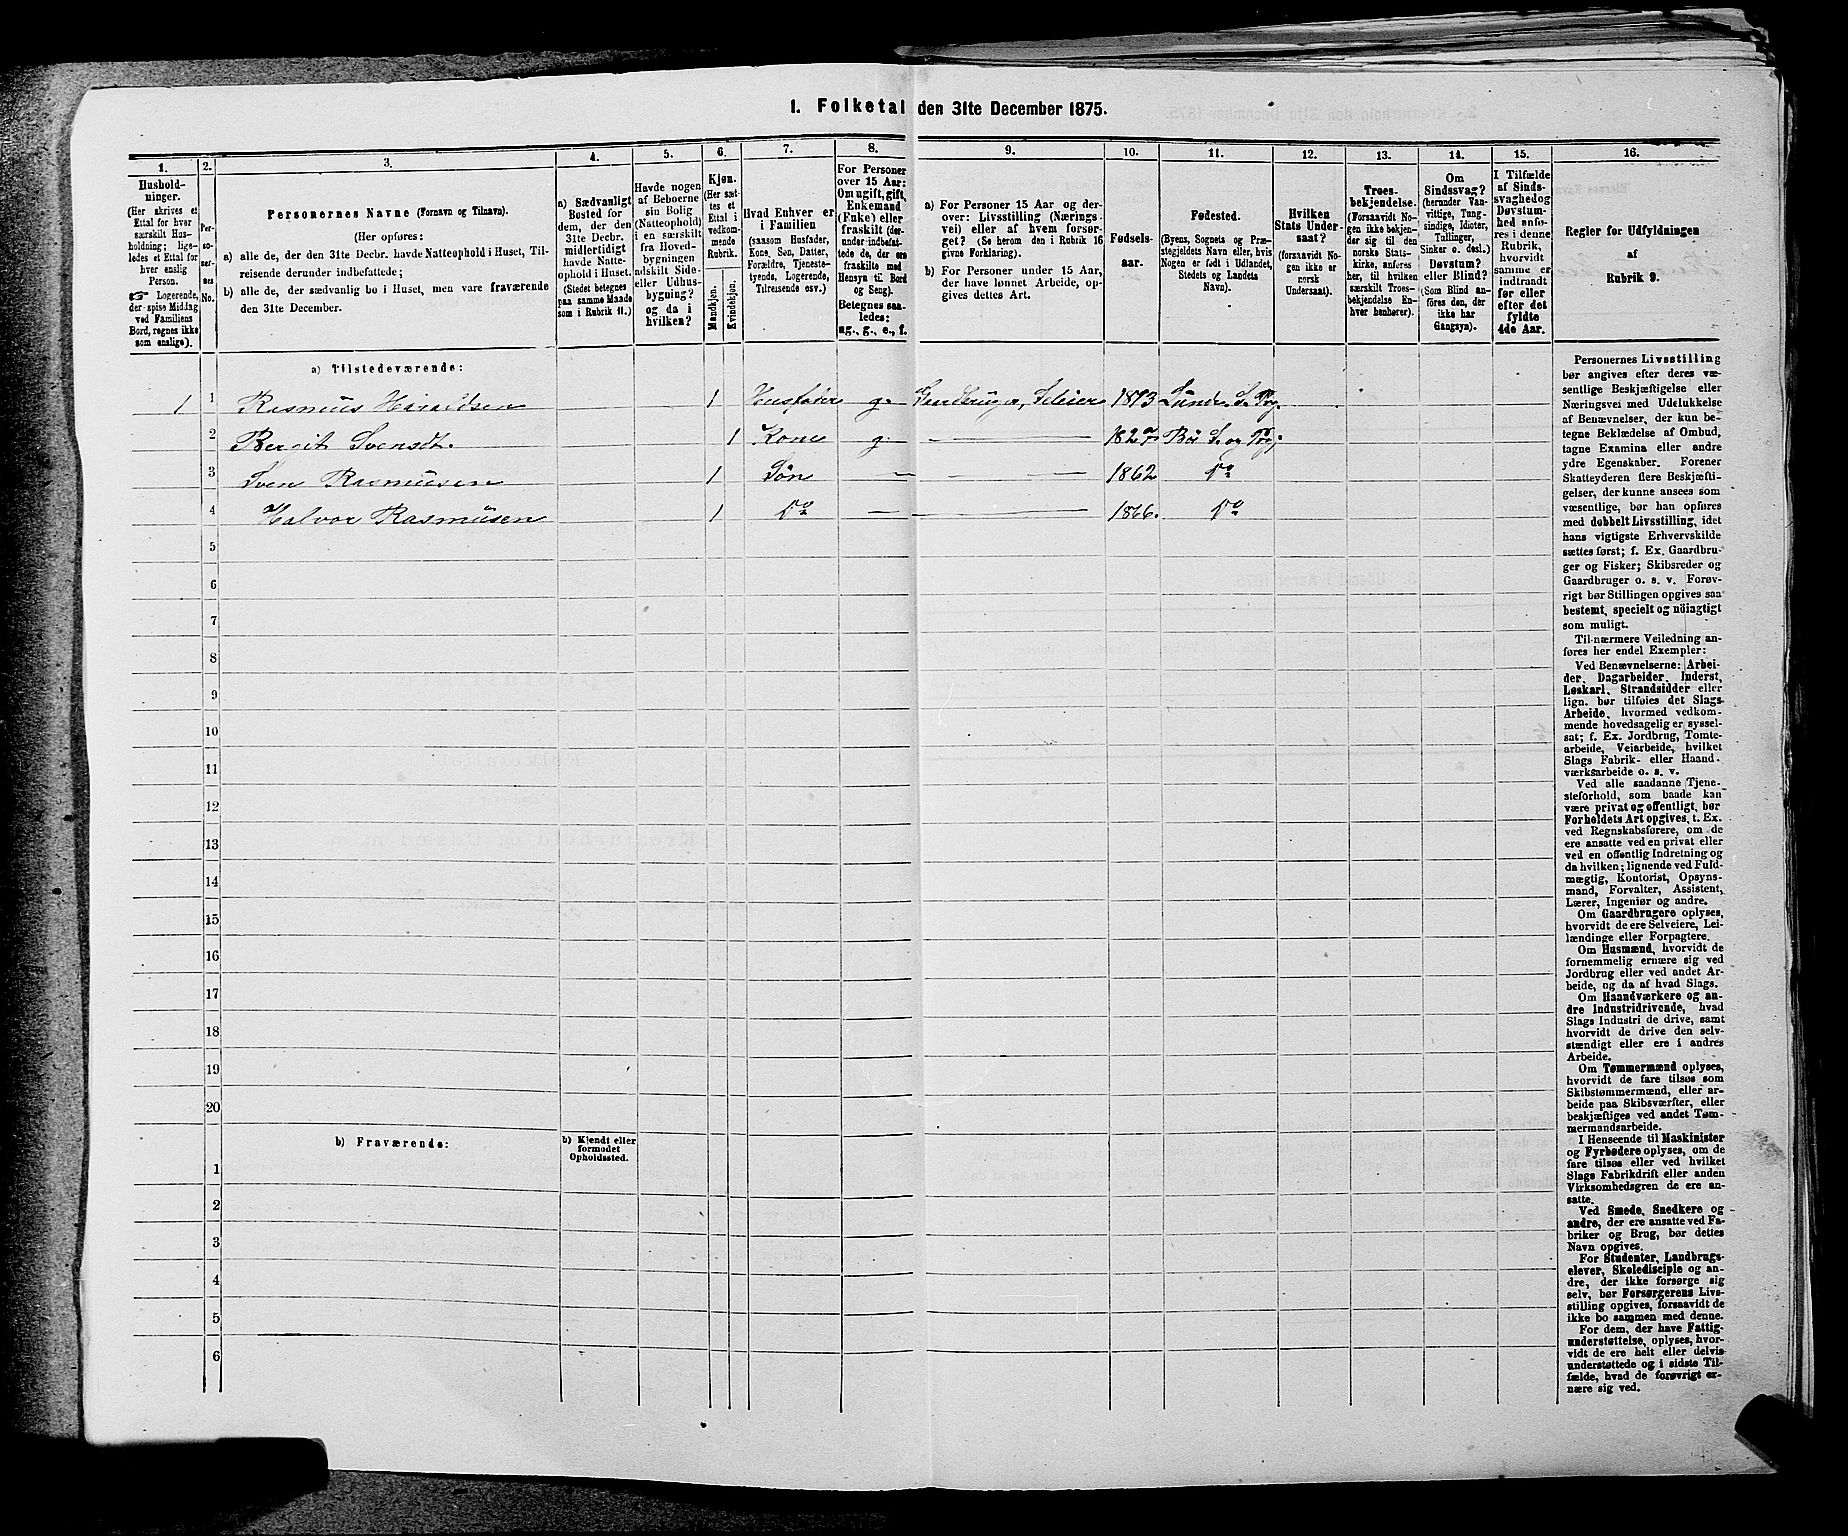 1. Folketal den 31te December 1875.
1. 2. 3. 4. 5. 6. 7. 8. 9. 10. 11. 12. 13. 14. 15. 16.
Hushold-
ninger.
(Her skrives et
Ettal for hver
særskilt Hus-
holdning; lige-
ledes et Ettal for
hver enslig
Person.
☞ Logerende,
der spise Middag
ved Familiens
Bord, regnes ikke
som enslige).
Per-
so-
ner-
nes
No.
Personernes Navne (Fornavn og Tilnavn).
(Her opføres:
a) alle de, der den 31te Decbr. havde Natteophold i Huset, Til-
reisende derunder indbefattede;
b) alle de, der sædvanlig bo i Huset, men vare fraværende
den 31te December.
a) Sædvanligt
Bosted for
dem, der den
31te Decbr.
midlertidigt
havde Natte-
ophold i Huset.
(Stedet betegnes
paa samme Maade
som i Rubrik 11.)
Havde nogen
af Beboerne
sin Bolig
(Natteophold)
i en særskilt
fra Hoved-
bygningen
adskilt Side-
eller Udhus-
bygning?
og da i
hvilken?
Kjøn.
(Her sæt-
tes et
Ettal i
vedkom-
mende
Rubrik.
Mandkjøn.
Kvindekjøn.
Hvad Enhver er
i Familien
(saasom Husfader,
Kone, Søn, Datter,
Forældre, Tjeneste-
tyende, Logerende,
Tilreisende osv.).
For Personer
over 15 Aar:
Om ugift, gift,
Enkemand
(Enke) eller
fraskilt (der-
under indbefat-
tede de, der ere
fraskilte med
Hensyn til Bord
og Seng).
Betegnes saa-
ledes:
ug., g., e., f.
a) For Personer 15 Aar og der-
over: Livsstilling (Nærings-
vei) eller af hvem forsør-
get? (Se herom den i Rubrik 16
givne Forklaring).
b) For Personer under 15 Aar,
der have lønnet Arbeide, op-
gives dettes Art.
Fødsels-
aar.
Fødested.
(Byens, Sognets og Præ-
stegjeldets Navn eller, hvis
Nogen er født i Udlandet,
Stedets og Landets
Navn).
Hvilken
Stats Under-
saat?
(forsaavidt No-
gen ikke er
norsk
Undersaat).
Troes-
bekjendelse.
(Forsaavidt No-
gen ikke bekjen-
der sig til den
norske Stats-
kirke, anføres
her, til hvilken
særskilt Troes-
bekjendelse En-
hver henhører).
Om
Sindssvag?
(herunder Van-
vittige, Tung-
sindige, Idioter,
Tullinger,
Sinker o. desl.)
Døvstum?
eller Blind?
(Som Blind an-
føres den, der
ikke har
Gangsyn).
I Tilfælde
af Sinds-
svaghed og
Døvstum-
hed anfø-
res i denne
Rubrik,
hvorvidt
samme er
indtraadt
før eller
efter det
fyldte
4de Aar.
Regler for Udfyldningen
af
Rubrik 9.
a) Tilstedeværende:
1 1 Rasmus Haraldsen 1 Husfader g. Gaardbruger, Seleier 1813 Lunde S. Pg.
2 Bergit Svensdt. 1 Kone g. — — 1827 Bø S. og Pg.
3 Sven Rasmusen 1 Søn — — 1862 Do
4 Halvor Rasmusen 1 Do — — 1866. Do
5
6
7
8
9
10
11
12
13
14
15
16
17
18
19
20
b) Fraværende:
b) Kjendt eller
formodet
Opholdssted.
1
2
3
4
5
6
Personernes Livsstilling
bør angives efter deres væ-
sentlige Beskjæftigelse eller
Næringsvei med Udelukkelse
af Benævnelser, der kun be-
tegne Beklædelse af Ombud,
tagne Examina eller andre
ydre Egenskaber. Forener
Skatteyderen flere Beskjæfti-
gelser, der kunne ansees som
væsentlige, bør han opføres
med dobbelt Livsstilling, idet
hans vigtigste Erhvervskilde
sættes først; f. Ex. Gaardbru-
ger og Fisker; Skibsreder og
Gaardbruger o. s. v. Forøv-
rigt bør Stillingen opgives saa
bestemt, specielt og nöiagtigt
som muligt.
Til nærmere Veiledning an-
føres her endel Exempler:
Ved Benævnelserne: Arbei-
der, Dagarbeider, Inderst,
Løskarl, Strandsidder eller
lign. bør tilføies det Slags
Arbeide, hvormed vedkom-
mende hovedsagelig er syssel-
sat; f. Ex. Jordbrug, Tomte-
arbeide, Veiarbeide, hvilket
Slags Fabrik- eller Haand-
værksarbeide o. s. v.
Ved alle saadanne Tjene-
steforhold, som baade kan
være privat og offentligt, bør
Forholdets Art opgives, t. Ex.
ved Regnskabsførere, om de
ere ansatte ved en privat eller
ved en offentlig Indretning og
da hvilken; lignende ved Fuld-
mægtig, Kontorist, Opsyns-
mand, Forvalter, Assistent,
Lærer, Ingeniør og andre.
Om Gaardbrugere oplyses,
hvorvidt de ere Selveiere, Lei-
lændinge eller Forpagtere.
Om Husmænd, hvorvidt de
fornemmelig ernære sig ved
Jordbrug eller ved andet Ar-
beide, og da af hvad Slags.
Om Haandværkere og an-
dre Industridrivende, hvad
Slags Industri de drive, samt
hvorvidt de drive den selv-
stændigt eller ere i andres
Arbeide.
Om Tømmermænd oplyses,
hvorvidt de fare tilsøs som
Skibstømmermænd, eller ar-
beide paa Skibsværfter, eller
beskjæftiges ved andet Tøm-
mermandsarbeide.
I Henseende til Maskinister
og Fyrbødere oplyses, om de
fare tilsøs eller ved hvilket
Slags Fabrikdrift eller anden
Virksomhedsgren de ere an-
satte.
Ved Smede, Snedkere og
andre, der ere ansatte ved Fa-
briker og Brug, bør dettes
Navn opgives.
For Studenter, Landbrugs-
elever, Skoledisciple og an-
dre, der ikke forsørge sig
selv, bør Forsørgerens Livs-
stilling opgives, forsaavidt de
ikke bo sammen med denne.
For dem, der have Fattig-
understøttelse, oplyses, hvor-
vidt de ere helt eller delvis
understøttede og i sidste Til-
fælde, hvad de forøvrigt er-
nære sig ved.